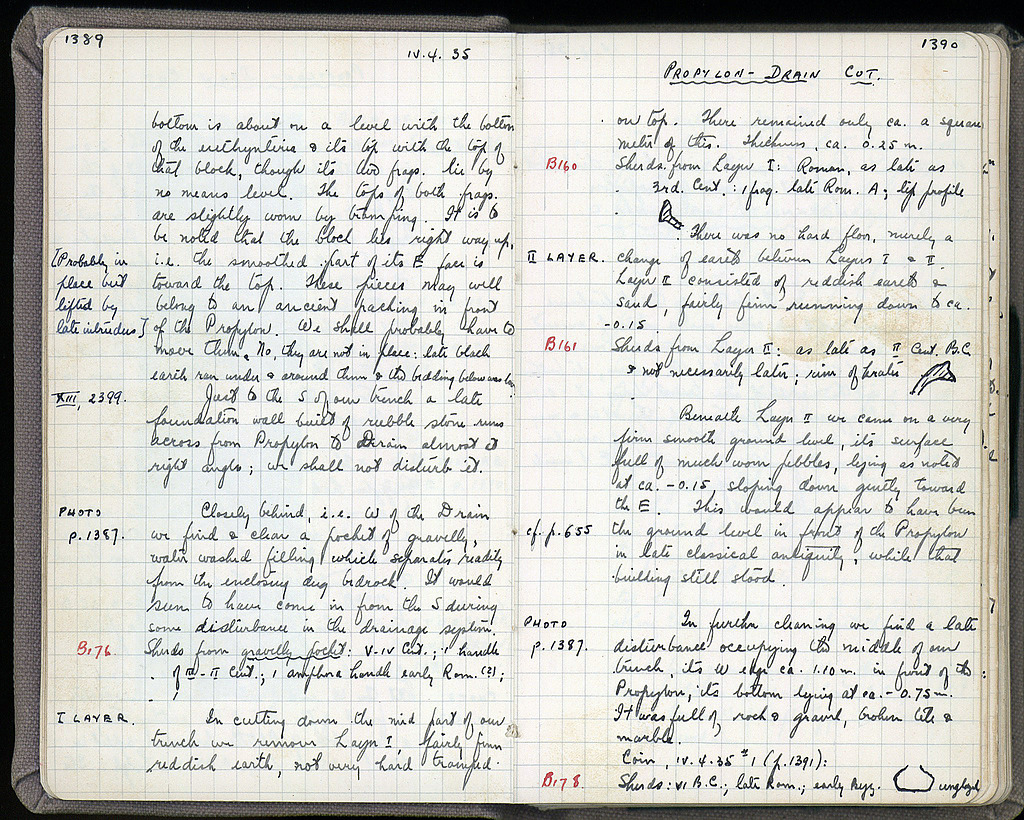 1389
IV.4.35
bottom is about on a level with the bottom
of the euthynteria & its top with the top of
that block, though its two frags. lie by
no means level. The tops of both frags.
are slightly worn by tramping. It is to
be noted that the block lies right way up,
[Probably in
place but
lifted by
late intruders]
i.e. the smoothed part of its E face is
toward the top. These pieces may well
belong to an ancient packing in front
of the Propylon. We shall probably have to
move them. No, they are not in place: late black
earth ran under & around them & the bedding below was
XIII, 2399.
Just to the S of our trench a late
foundation wall built of rubble stone runs
across from Propylon to Drain almost at
right angles; we shall not disturb it.
PHOTO
p. 1387.
Closely behind, i.e. W of the Drain
we find & clear a pocket of gravelly,
water washed filling, which separates readily
from the enclosing dug bedrock. It would
seem to have come in from the S during
some disturbance in the drainage system.
B176
Sherds from gravelly pocket: V-IV Cent.; 1 handle
of III-II Cent.; 1 amphora handle early Rom. (?);
I LAYER.
In cutting down the mid part of our
trench we remove Layer I, fairly firm
reddish earth, not very hard tramped.
1390
PROPYLON-DRAIN CUT.
on top. There remained only ca. a square
metre of this. Thickness, ca. 0.25 m.
B160
Sherds from Layer I: Roman, as late as
3rd. Cent.: 1 frag. late Rom. A; lip profile
There was no hard floor, merely a
II LAYER.
change of earth between Layers I & II.
Layer II consisted of reddish earth &
sand, fairly firm running down to ca.
-0.15.
B161
Sherds from Layer II: as late as II Cent. B.C.
& not necessarily later; rim of krater
Beneath Layer II we came on a very
firm smooth ground level, its surface
full of much worn pebbles, lying as noted
at ca. -0.15 sloping down gently toward
the E. This would appear to have been
cf. p. 655
the ground level in front of the Propylon
in late classical antiquity, while that
building still stood.
PHOTO
p. 1387.
In further cleaning we find a late
disturbance occupying the middle of our
trench, its W edge ca. 1.10 m. in front of the
Propylon, its bottom lying at ca. -0.75 m.
It was full of rock & gravel, broken tile &
marble.
Coin, IV.4.35 #1 (p. 1391):
B178
Sherds: VI B.C.; late Rom.; early Byz. unglazed